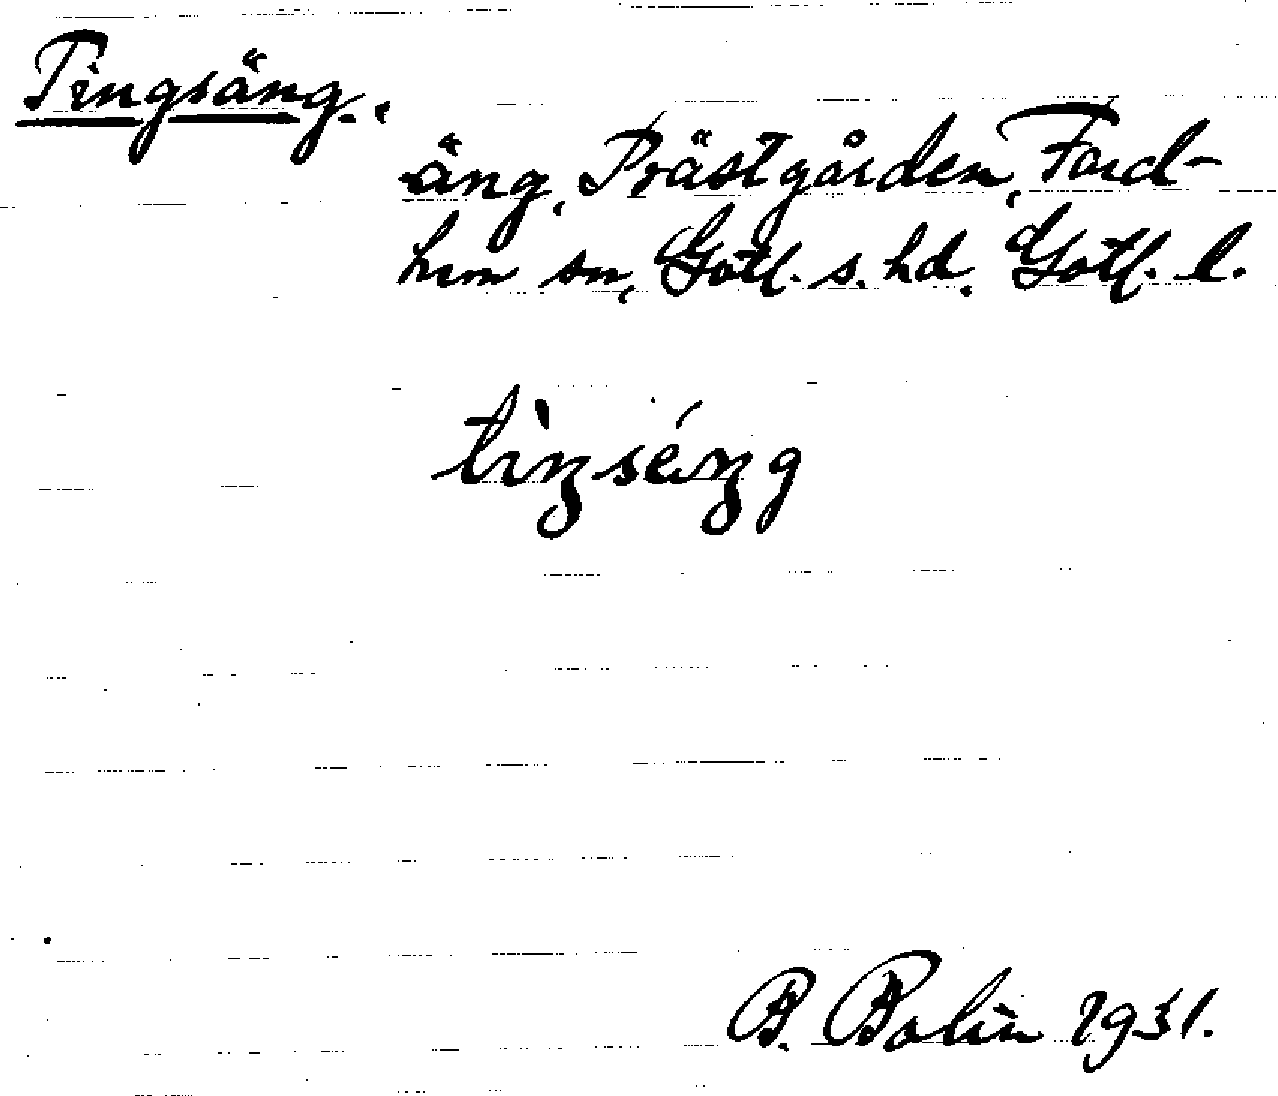 Tingsäng.
äng, Prästgården, Fard-
hem sn, Gotl. s. hd. Gotl. l.
tìŋséŋg
B. Bolin 1931.